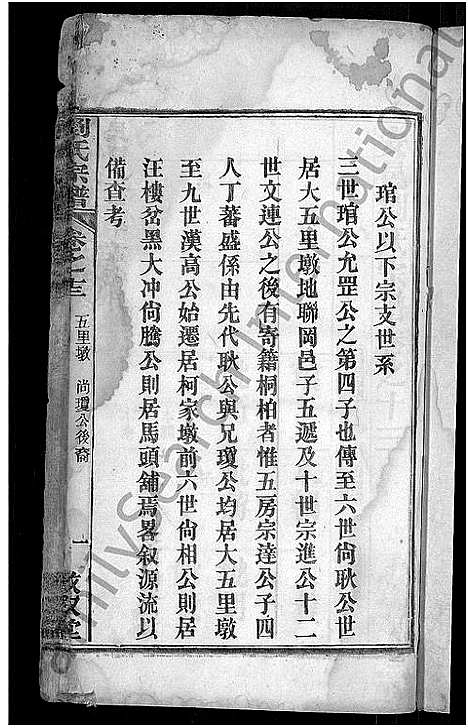 琯公以下宗支世系
三世琯公允罡公之第四子也傳至六世尙耿公世
居大五里墩地聯岡邑子五遞及十世宗進公十二
世文連公之後有寄籍桐柏者惟五房宗達公子四
人丁蕃盛係由先代耿公與兄瓊公均居大五里墩
至九世漢高公始遷居柯家墩前六世尙相公則居
汪樓岔黑大冲尙騰公則居馬頭舖焉畧叙源流以
備查考
劉氏宗譜
卷之十三
五里墩 尙瓊公後裔
一
堂